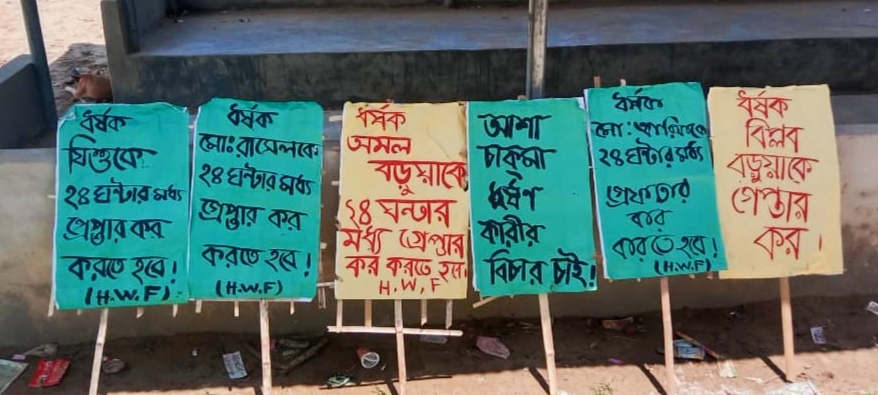 ধর্ষক
যিশুকে
২৪ ঘন্টার মধ্য
গ্রেপ্তার কর
করতে হবে!
(H.W.F)
ধর্ষক
মোঃ রাসেলকে
২৪ ঘন্টার মধ্য
গ্রেপ্তার কর
করতে হবে!
(H.W.F)
ধর্ষক
অমল
বড়ুয়াকে
২৪ ঘন্টার
মধ্য গ্রেপ্তার
কর করতে হবে!
H.W,F
আশা
চাকমা
ধর্ষণ
কারীর
বিচার চাই!
ধর্ষক
মো:
২৪ ঘন্টার মধ্য
গ্রেফতার
কর
করতে হবে!
(H.W.F)
ধর্ষক
বিপ্লব
বড়ুয়াকে
গেপ্তার
কর।